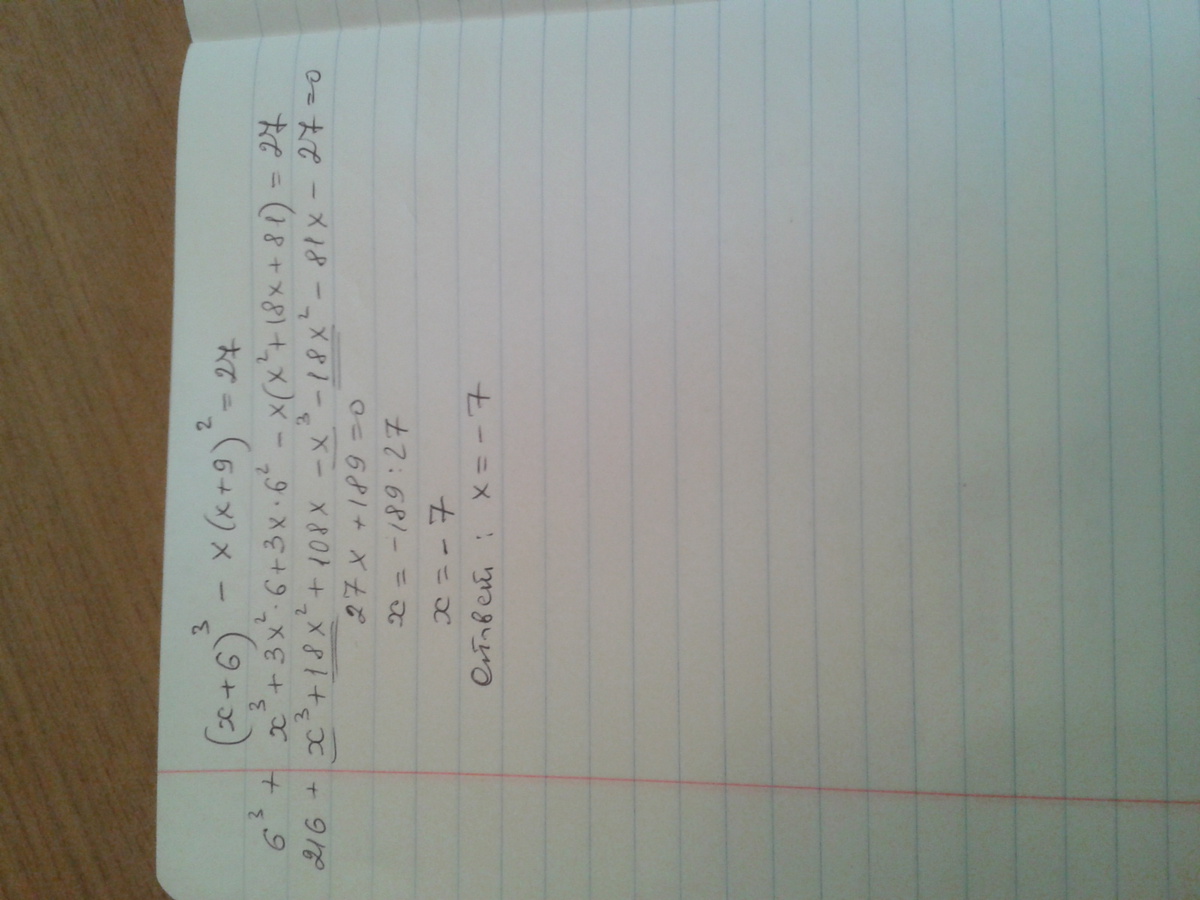 (x+6)³ - x(x+9)² = 27
6³ + x³ + 3x²·6 + 3x·6² - x(x² + 18x + 81) = 27
216 + x³ + 18x² + 108x - x³ - 18x² - 81x - 27 = 0
27x + 189 = 0
x = -189 : 27
x = -7
Ответ: x = -7